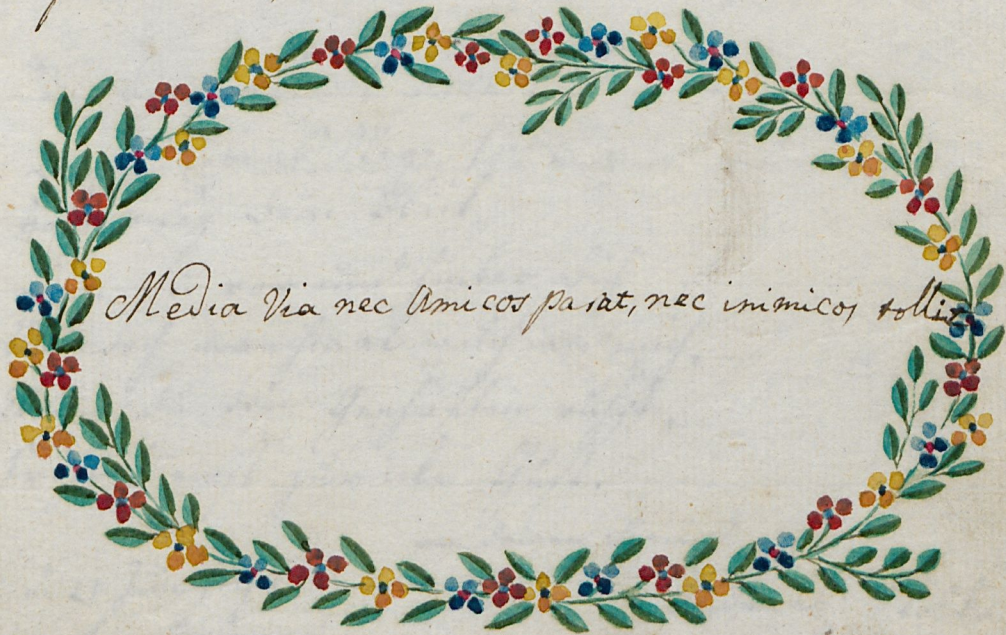 Media Via nec Amicos parat, nec inimicos tollit